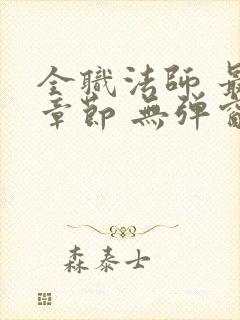 全職法師 最
章節 無彈窗
森泰士